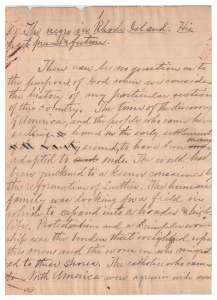 The negro in Rhode Island. His
past present & future.
There can be no question as to
the purpose of God when we consider
the history of this particular section
of this country. The time of the discovery
of America, and the people who came here
seeking a home in the early settlement
seemed to have been
adapted to under. The world had
been quickened to a keener consciousness by
the reformation of Luther. The human
family was looking for a field in
which to expand into a broader & higher
life. Protestantism and a
ship was the burden that weighed upon
the men and the women who migrated
to these Shores. The catholic who came
to North America were